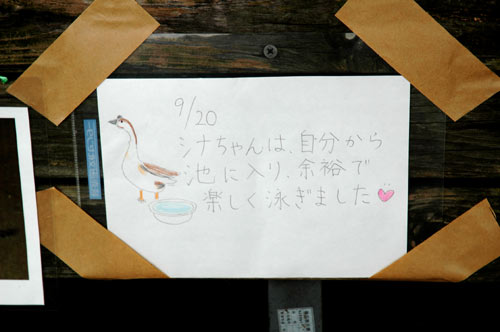 9/20
シナちゃんは、自分から
池に入り、余裕で
楽しく泳ぎました